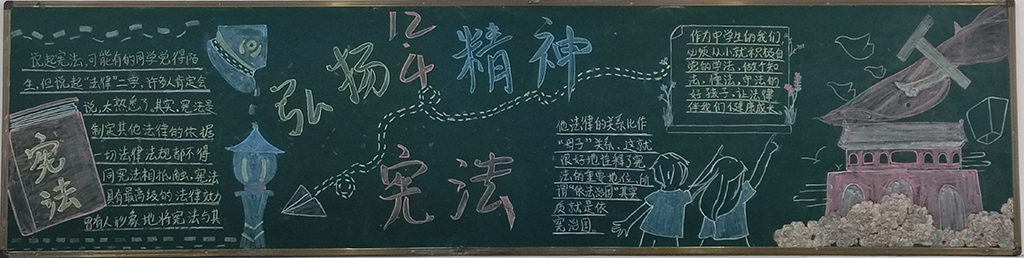 说起宪法,可能有的同学觉得陌
生,但说起"法律"一字,许多人肯定会
说,太熟悉了,其实,宪法是
制定其他法律的依据
一切法律法规都不得
同宪法相抵触,宪法
具有最高级的法律效力
曾有人形象地将宪法与其
宪法
弘扬
12
4
精神
宪法
他法律的关系比作
"母子"关系,这就
很好地诠释了宪
法的重要地位,所
谓"依法治国"其实
质就是依
宪治国。
作为中学生的我们
必须从小就积极自
觉的学法,做个知
法、懂法、守法的
好孩子,让法律
伴我们健康成长